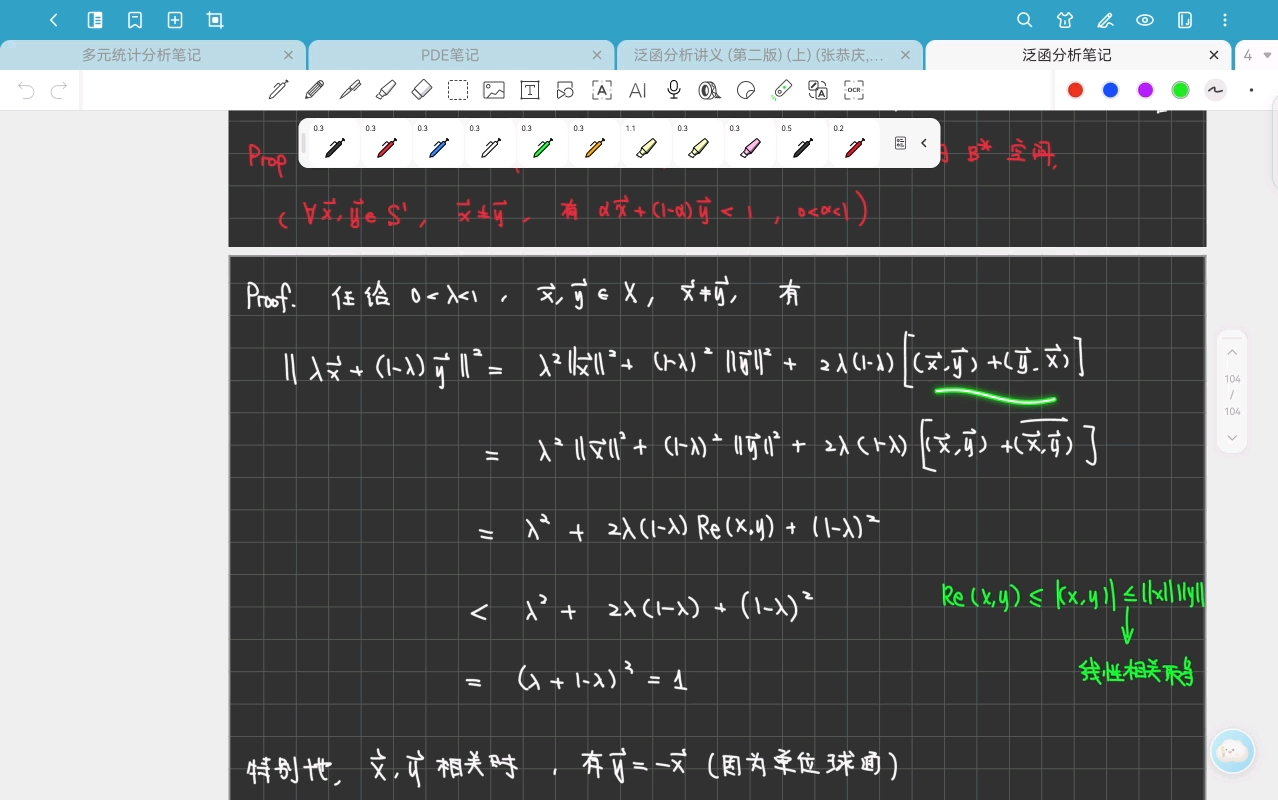 多元统计分析笔记 × PDE笔记 × 泛函分析讲义 (第二版) (上) (张恭庆,... × 泛函分析笔记 × 4
T A AI OCR
0.3 0.3 0.3 0.3 0.3 0.3 1.1 0.3 0.3 0.5 0.2
Prop 的 B* 空间.
( ∀x⃗, y⃗ ∈ S', x⃗ ≠ y⃗, 有 αx⃗ + (1-α)y⃗ < 1, 0<α<1 )
Proof. 任给 0<λ<1, x⃗, y⃗ ∈ X, x⃗ ≠ y⃗, 有
‖λx⃗ + (1-λ)y⃗‖² = λ²‖x⃗‖² + (1-λ)²‖y⃗‖² + 2λ(1-λ)[(x⃗,y⃗) + (y⃗,x⃗)]
= λ²‖x⃗‖² + (1-λ)²‖y⃗‖² + 2λ(1-λ)[(x⃗,y⃗) + \overline{(x⃗,y⃗)}]
= λ² + 2λ(1-λ)Re(x,y) + (1-λ)²
< λ² + 2λ(1-λ) + (1-λ)²
Re(x,y) ≤ |(x,y)| ≤ ‖x‖‖y‖
线性相关取等
= (λ+1-λ)² = 1
特别地, x⃗, y⃗ 相关时, 有 y⃗ = -x⃗ (因为单位球面)
104
/
104